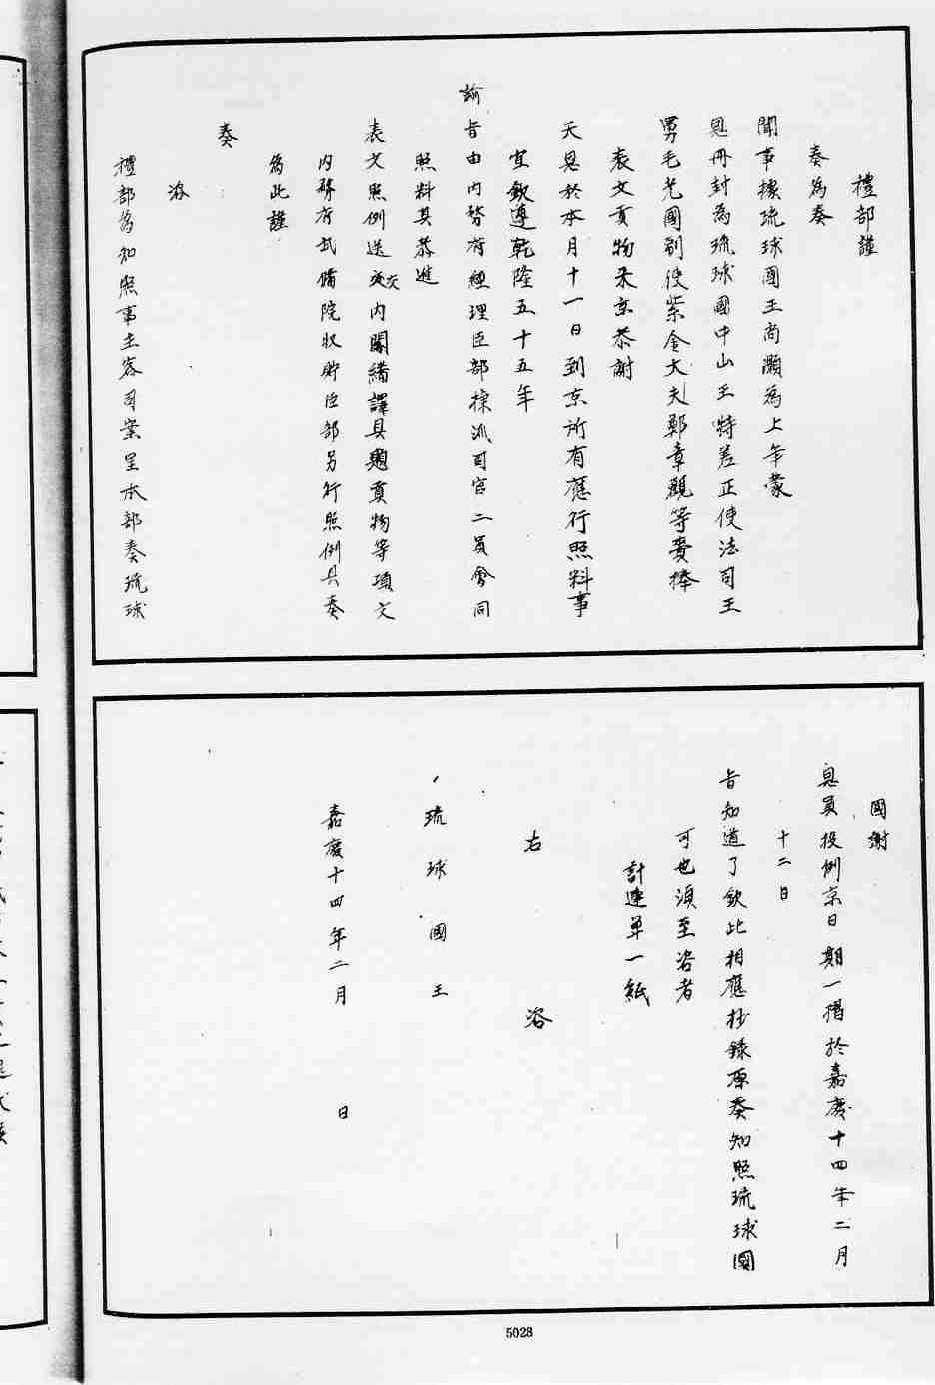 禮部謹
奏為奏
聞事據琉球國王尚灝為上年蒙
恩冊封為琉球國中山王特差正使法司王
舅毛光國副使紫金大夫鄭章觀等賫捧
表文貢物来京恭謝
天恩於本月十一日到京所有應行照料事
宜欽遵乾隆五十五年
諭旨由内務府經理臣部揀派司官二員會同
照料其恭進
表文照例送交内閣繙譯具題貢物等項文
内務府武備院收貯臣部另行照例具奏
為此謹
奏
咨
禮部為知照事主客司案呈本部奏琉球
國謝
恩員役例京日期一摺於嘉慶十四年二月
十二日
旨知道了欽此相應抄錄原奏知照琉球國
可也須至咨者
計連單一紙
右咨
琉球國王
嘉慶十四年二月 日
5028